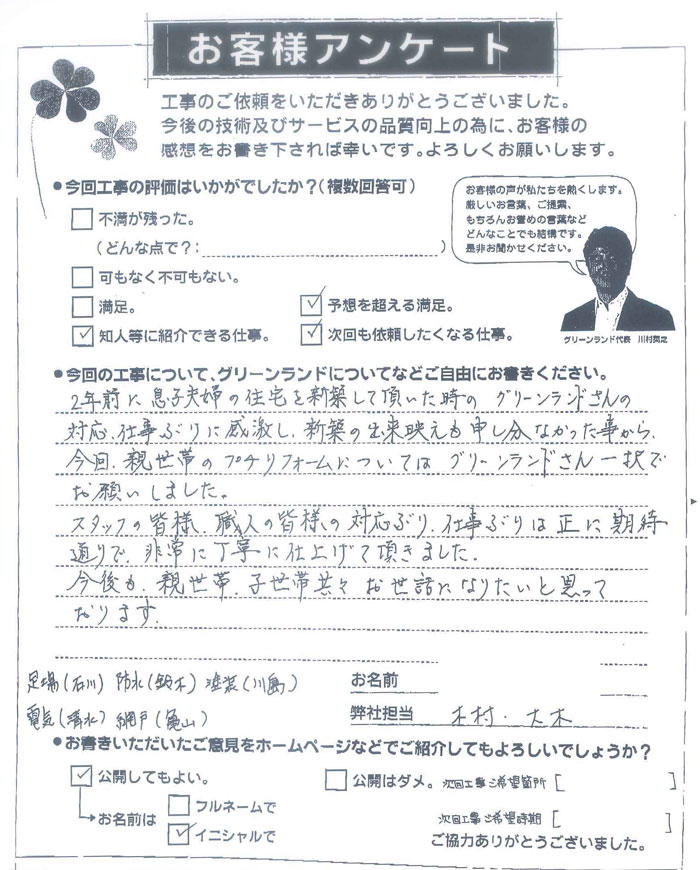 お客様アンケート
工事のご依頼をいただきありがとうございました。
今後の技術及びサービスの品質向上の為に、お客様の
感想をお書き下されば幸いです。よろしくお願いします。
●今回工事の評価はいかがでしたか？（複数回答可）
不満が残った。
（どんな点で？：）
可もなく不可もない。
満足。
予想を超える満足。
知人等に紹介できる仕事。
次回も依頼したくなる仕事。
お客様の声が私たちを熱くします。
厳しいお言葉、ご提案、
もちろんお誉めの言葉など
どんなことでも結構です。
是非お聞かせください。
グリーンランド代表 川村
●今回の工事について、グリーンランドについてなどご自由にお書きください。
2年前に息子夫婦の住宅を新築して頂いた時の グリーンランドさんの
対応、仕事ぶりに感激し、新築の出来映えも申し分なかった事から、
今回、親世帯のプチリフォームについては グリーンランドさん一択で
お願いしました。
スタッフの皆様、職人の皆様の対応ぶり、仕事ぶりは正に期待
通りで、非常に丁寧に仕上げて頂きました。
今後も、親世帯、子世帯共々 お世話になりたいと思って
おります。
足場（石川） 防水（鈴木） 塗装（川島）
電気（清水） 網戸（亀山）
お名前
弊社担当 木村・大木
●お書きいただいたご意見をホームページなどでご紹介してもよろしいでしょうか？
公開してもよい。
公開はダメ。
次回工事ご希望箇所［ ］
お名前は
フルネームで
イニシャルで
次回工事ご希望時期［ ］
ご協力ありがとうございました。